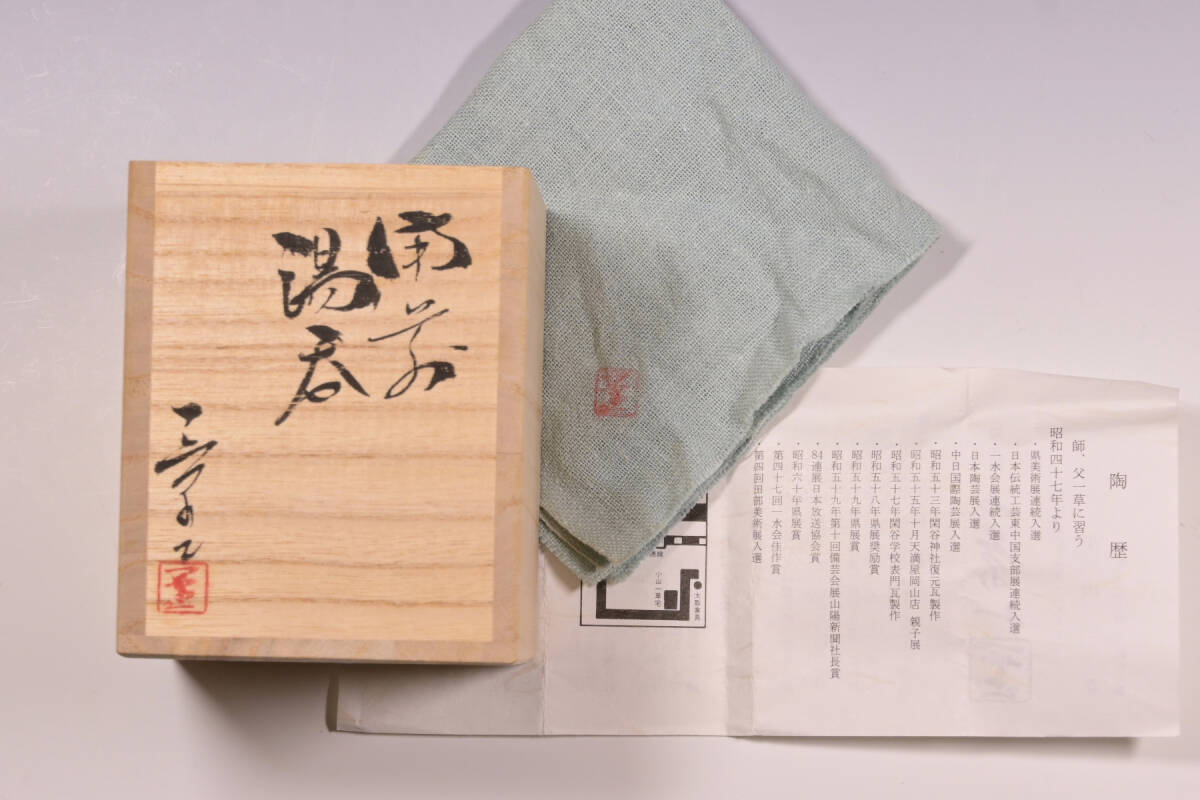 備前
湯呑
陶歴
師、父一草に習う
昭和四十七年より
・県美術展連続入選
・日本伝統工芸東中国支部展連続入選
・一水会展連続入選
・日本陶芸展入選
・中日国際陶芸展入選
・昭和五十三年閑谷神社復元瓦製作
・昭和五十五年十月天満屋岡山店 親子展
・昭和五十七年閑谷学校表門瓦製作
・昭和五十八年県展奨励賞
・昭和五十九年県展賞
・昭和五十九年第十回備芸会展山陽新聞社長賞
・84連展日本放送協会賞
・昭和六十年県展賞
・第四十七回一水会佳作賞
・第四回田部美術展入選
小山一草宅